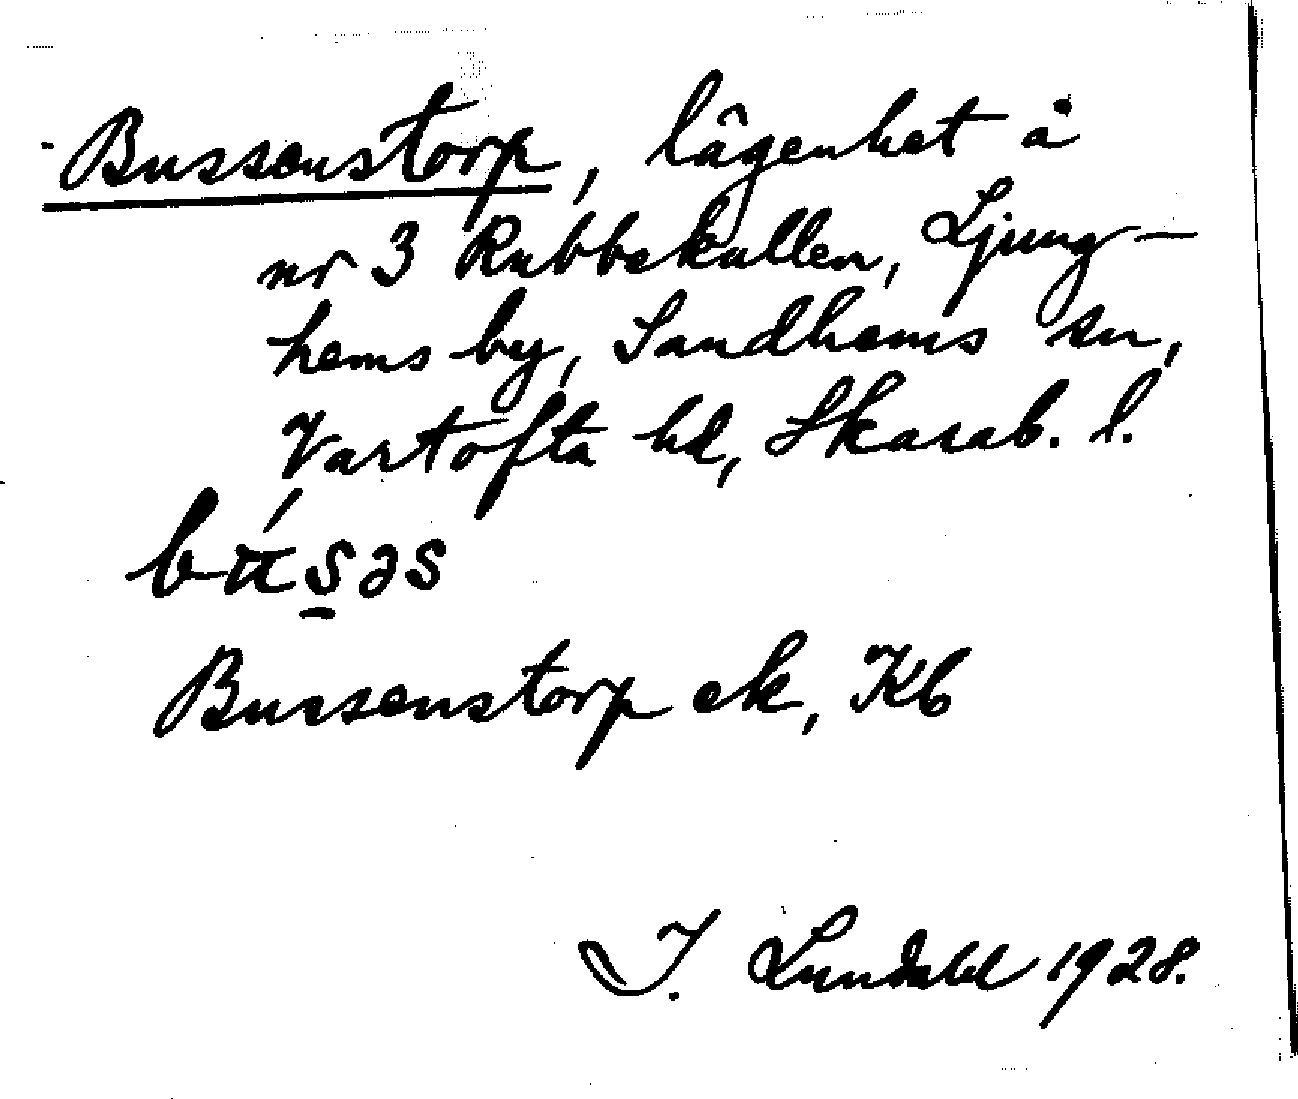 Bussenstorp, lägenhet å
nr 3 Rubbekullen, Ljung-
hems by, Sandhems sn,
Vartofta hd, Skarab. l.
Bussenstorp ek, Kb
I. Lundahl 1928.